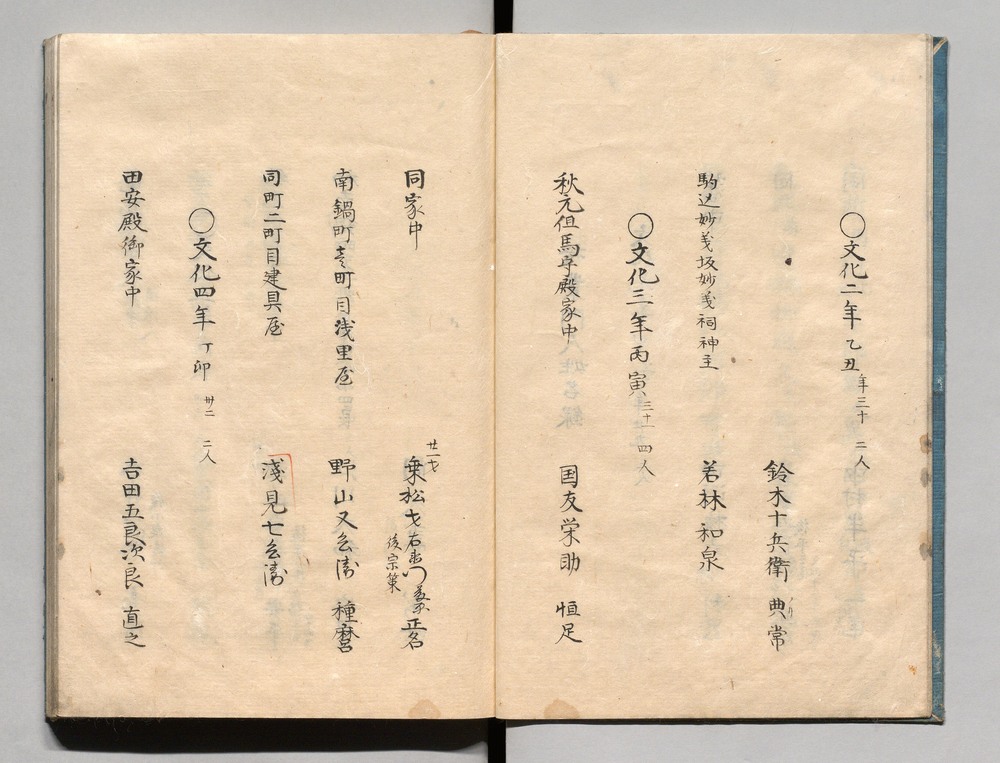 〇文化二年乙丑 年三十 二人
鈴木十兵衛 典常
駒込妙義坂妙義祠神主 若林和泉
〇文化三年丙寅 三十一 四人
秋元但馬守殿家中 国友栄助 恒足
同家中 廿一才 乗松才右衛門 正名
後宗策
南鍋町壱町目浅里屋 野山又兵衛 種麿
同町二町目建具屋 淺見七兵衛
〇文化四年丁卯 卅二 二人
田安殿御家中 吉田五良次良 直之